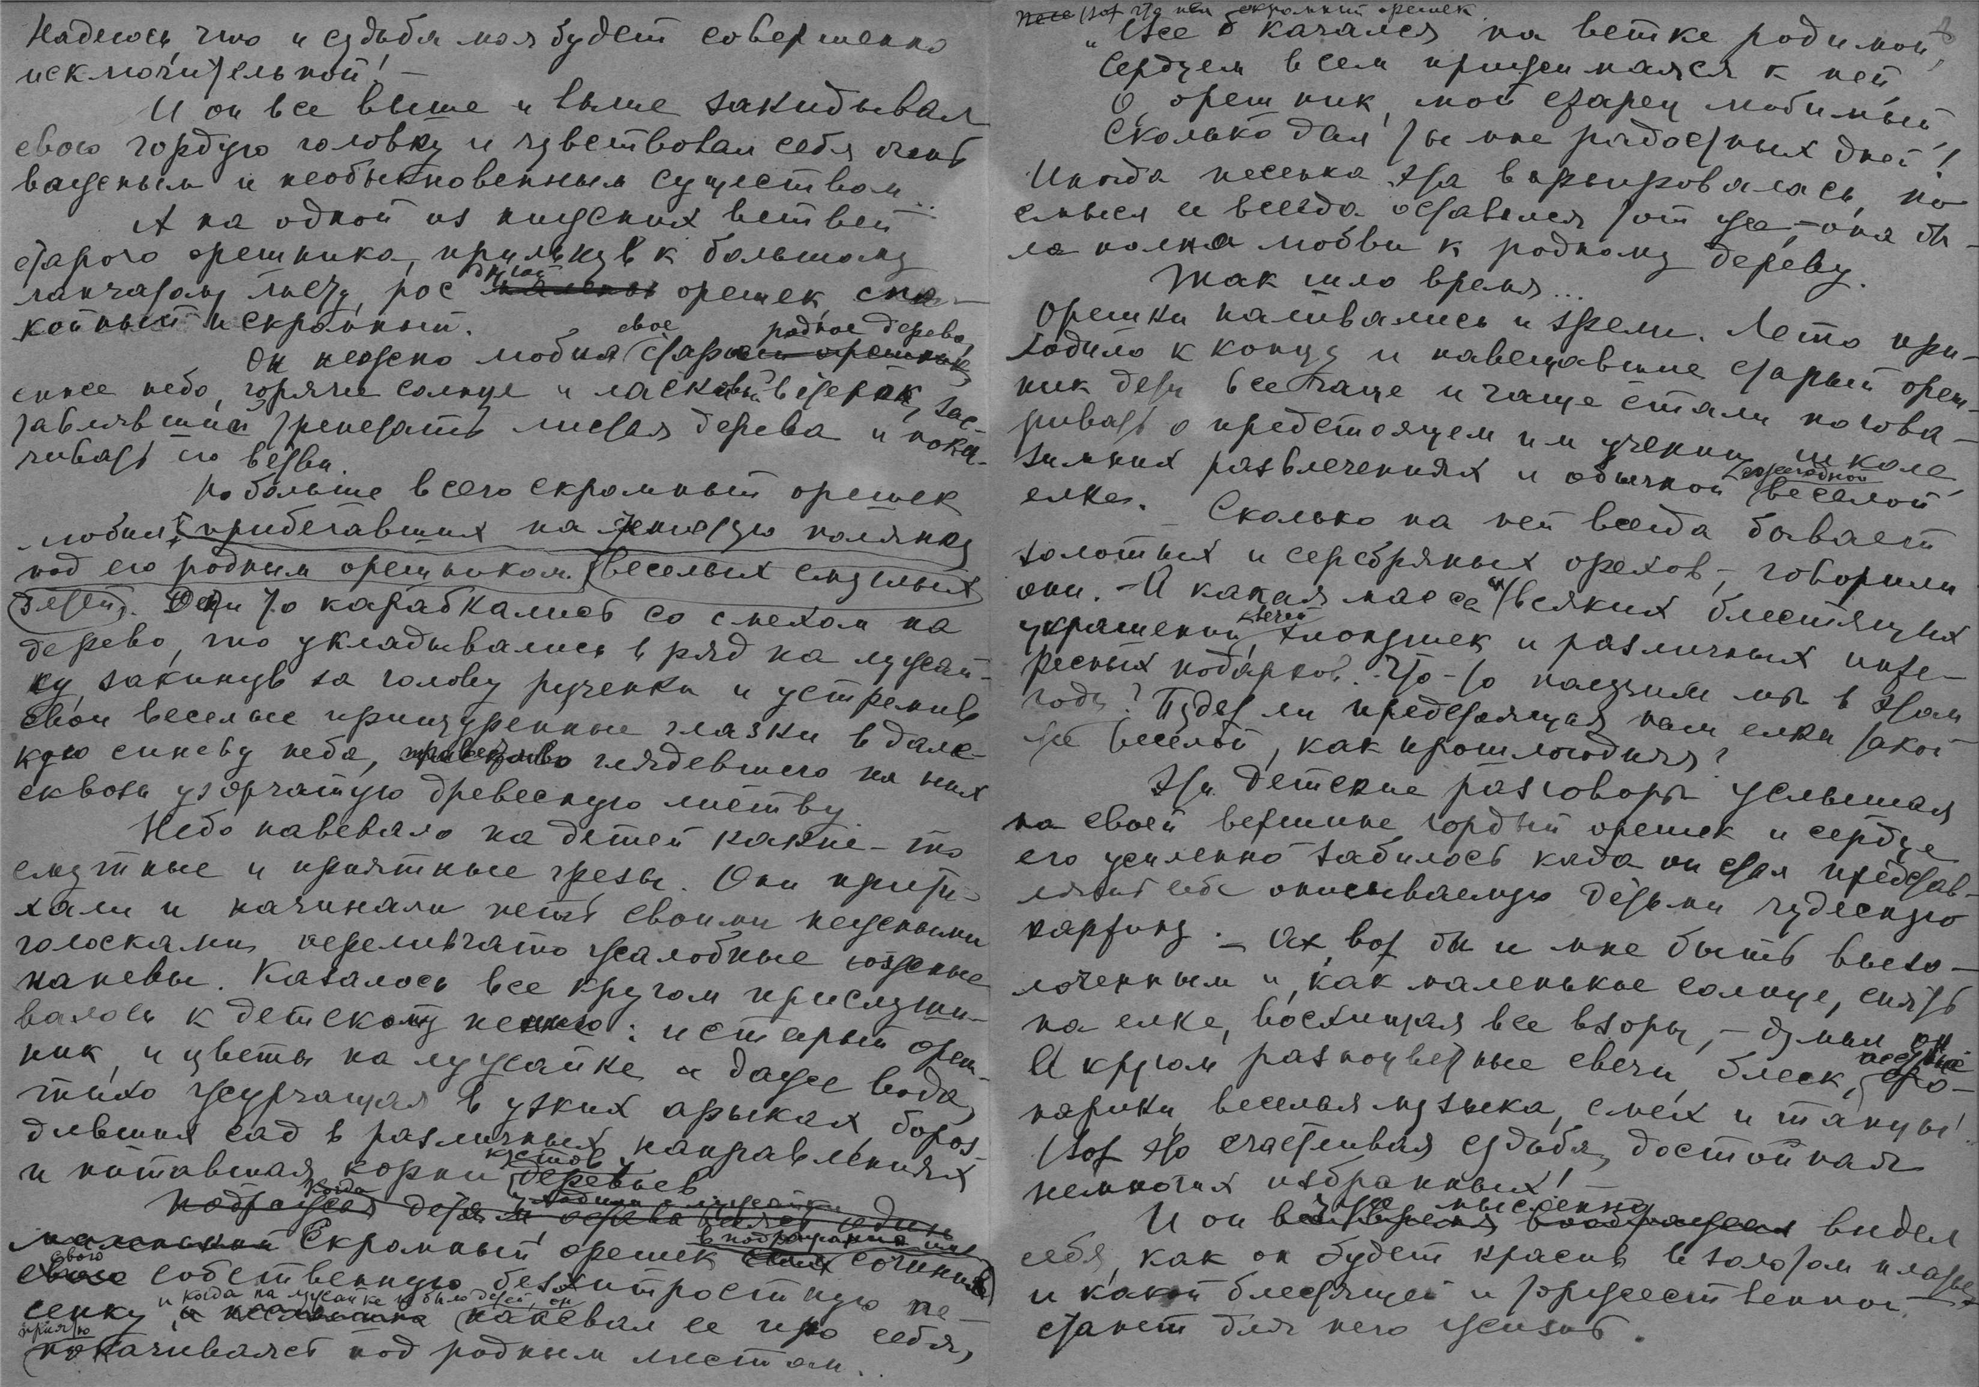 Надеюсь, что и судьба моя будет совершенно
исключительной! —
И он все выше и выше закидывал
свою гордую головку и чувствовал себя очень
важным и необыкновенным существом...
А на одной из нижних ветвей
старого орешника, прильнув к большому
лапчатому листу, рос другой маленький орешек спо-
койный и скромный.
Он нежно любил свое старое родное дерево,
синее небо, горячее солнце и ласковый ветерок, зас-
тавлявший трепетать листья дерева и пока-
чивать его ветви.
Но больше всего скромный орешек
любил прибегавших на тенистую полянку
под его родным орешником веселых смуглых
детей. Они то карабкались со смехом на
дерево, то укладывались в ряд на лужай-
ку, закинув за голову рученки и устремив
свои веселые прищуренные глазки в дале-
кую синеву неба, приветливо глядевшего на них
сквозь узорчатую древесную листву.
Небо навевало на детей какие-то
смутные и приятные грезы. Они прити-
хали и начинали петь своими нежными
голосками переливчато жалобные южные
напевы. Казалось все кругом прислуши-
валось к детскому пению: и старый ореш-
ник, и цветы на лужайке и даже вода,
тихо журчащая в узких арыках, бороз-
дивших сад в различных направлениях
и питавшая корни кустов деревьев
Подражая детям
маленький Скромный орешек в подражание им сочинил
свою собственную безхитростную пе-
сенку и когда на лужайке не было детей, он напевал ее про себя,
покачиваясь под родным листом.
Вот что пел скромный орешек
"Все б качался на ветке родимой,
Сердцем всем прижимаяся к ней
О, орешник, мой старец любимый,
Сколько дал ты мне радостных дней!
Иногда песенка эта варьировалась, но
смысл ее всегда оставался тот же, — она бы-
ла полна любви к родному дереву.
Так шло время...
Орешки наливались и зрели. Лето при-
ходило к концу и навещавшие старый ореш-
ник дети все чаще и чаще стали погова-
ривать о предстоящем им учении, школе,
зимних развлечениях и обычной новогодной веселой
елке. — Сколько на ней всегда бывает
золотых и серебряных орехов, — говорили
они. — А какая масса всяких блестящих
украшений, свечей хлопушек и различных инте-
ресных подарков. Что-то получим мы в этом
году? Будет ли предстоящая нам елка такой
же веселой, как прошлогодняя?
Эти детские разговоры услышал
на своей вершине гордый орешек и сердце
его усиленно забилось когда он стал представ-
лять себе описываемую детьми чудесную
картину. — Ах, вот бы и мне быть вызо-
лоченным и, как маленькое солнце, сиять
на елке, восхищая все взоры, — думал он
А кругом разноцветные свечи, блеск,
нарики, веселая музыка, смех и танцы!
Вот это счастливая судьба, достойная
немногих избранных!
И он мысленно видел
себя, как он будет красив в золотом платье
и какой блестящей и торжественной
станет для него жизнь.